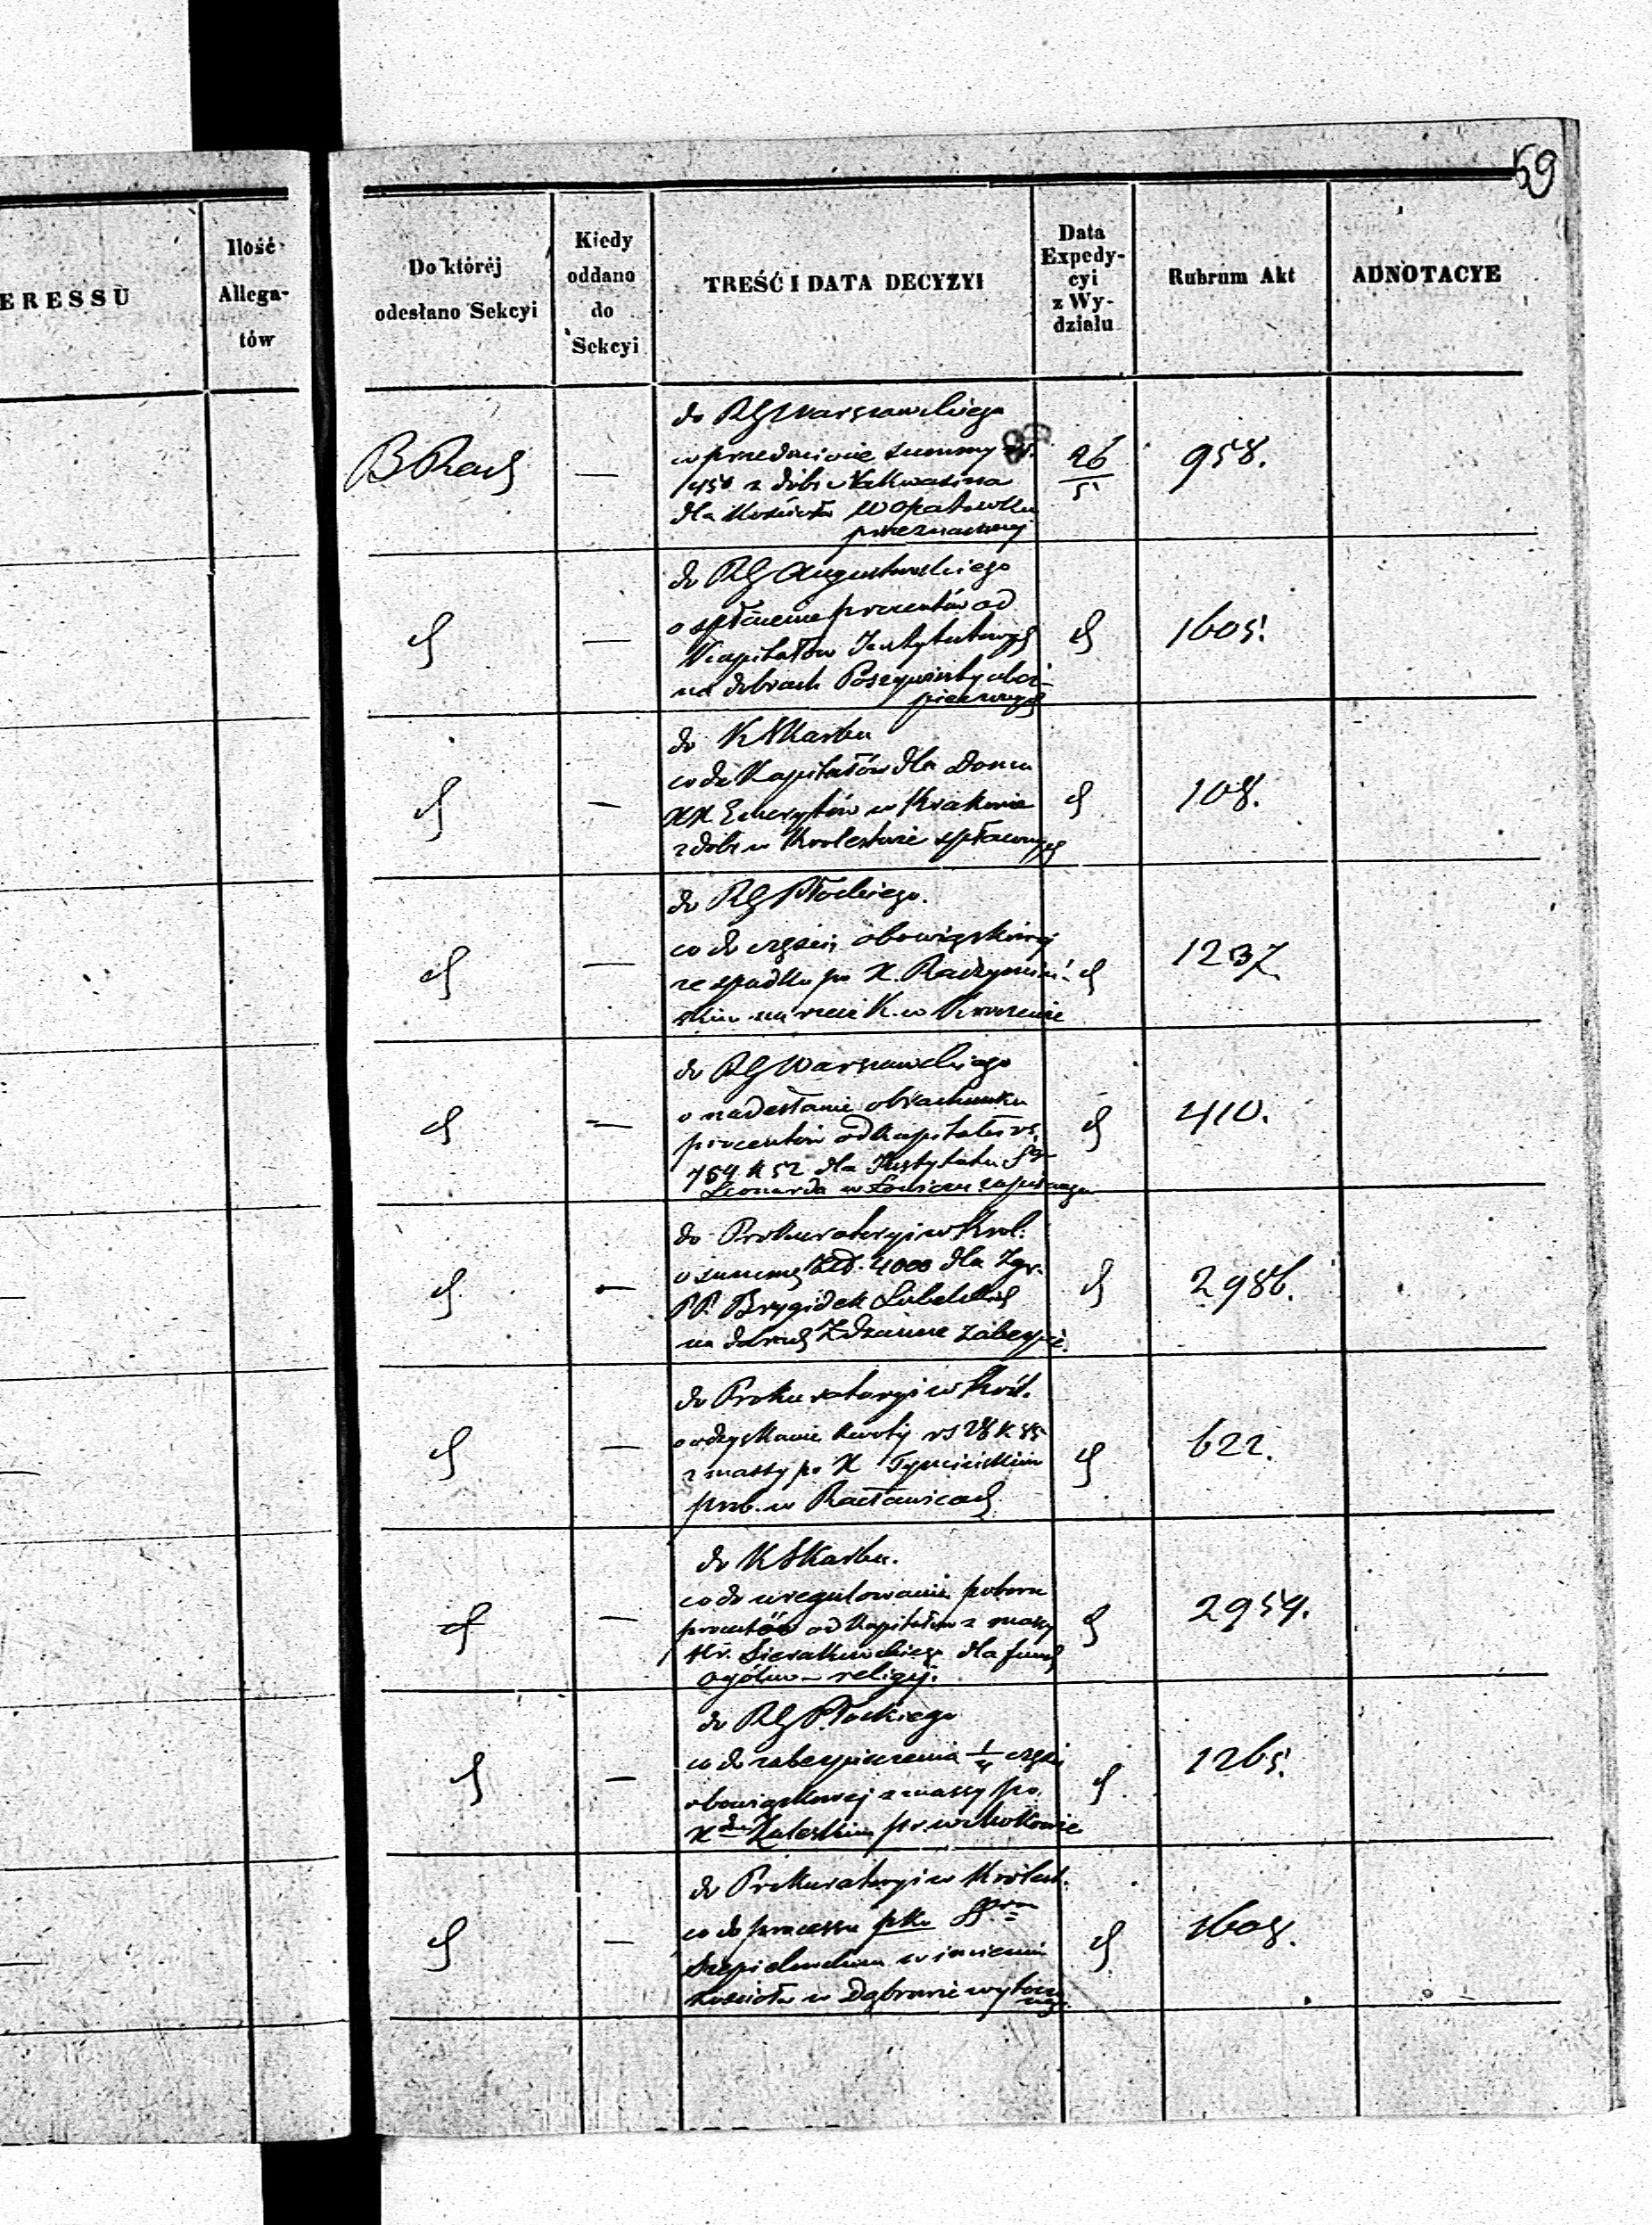 59
ERESSU
Ilość
Allega-
tów
Do któréj
odesłano Sekcyi
Kiedy
oddano
do
Sekcyi
TREŚĆ I DATA DECYZYI
Data
Expedy-
cyi
z Wy-
działu
Rubrum Akt
ADNOTACYE
B Rach
—
do RG Warszawskiego
w przedmiocie summy rs.
450 z dóbr
dla Kościoła w Opatówku
przeznaczonej
26/5
958.
—
do RG Augustowskiego
o spłacenie procentów od
Kapitałów Instytutowych
na dobrach
1605.
—
do K Skarbu
co do Kapitałów dla Domu
XX Emerytów w Krakowie
z dóbr w Krolestwie spłaconych
108.
—
do RG Płockiego.
co do części obowiązkowej
ze spadku po X. Radzymiń-
skim na rzecz K. w
1237.
—
do RG Warszawskiego
o nadesłanie obrachunku
procentów od Kapitału rs.
764 k 52 dla Instytutu Sgo
Leonarda w Łowiczu zapisanego
410.
—
do Prokuratoryi w Krol.
o summę złp. 4000 dla Zgr.
PP. Brygidek Lubelskich
na dobrach Zdzanne zabezpie.
2986.
—
do Prokuratoryi w Król.
o odzyskanie kwoty rs 28 k 55
z massy po X
prob. w Racławicach
622.
—
do K Skarbu.
co do uregulowania poboru
procentów od Kapitałów z massy
Hr. Sierakowskiego dla fund
ogólno-religij.
2954.
—
do RG Płockiego
co do zabezpieczenia 1/4 części
obowiązkowej z massy po
X Zaleskim pr. w
1265.
—
do Prokuratoryi w Królest.
co do processu pko
w imieniu
kościoła w Dąbrowie wytocz
1608.